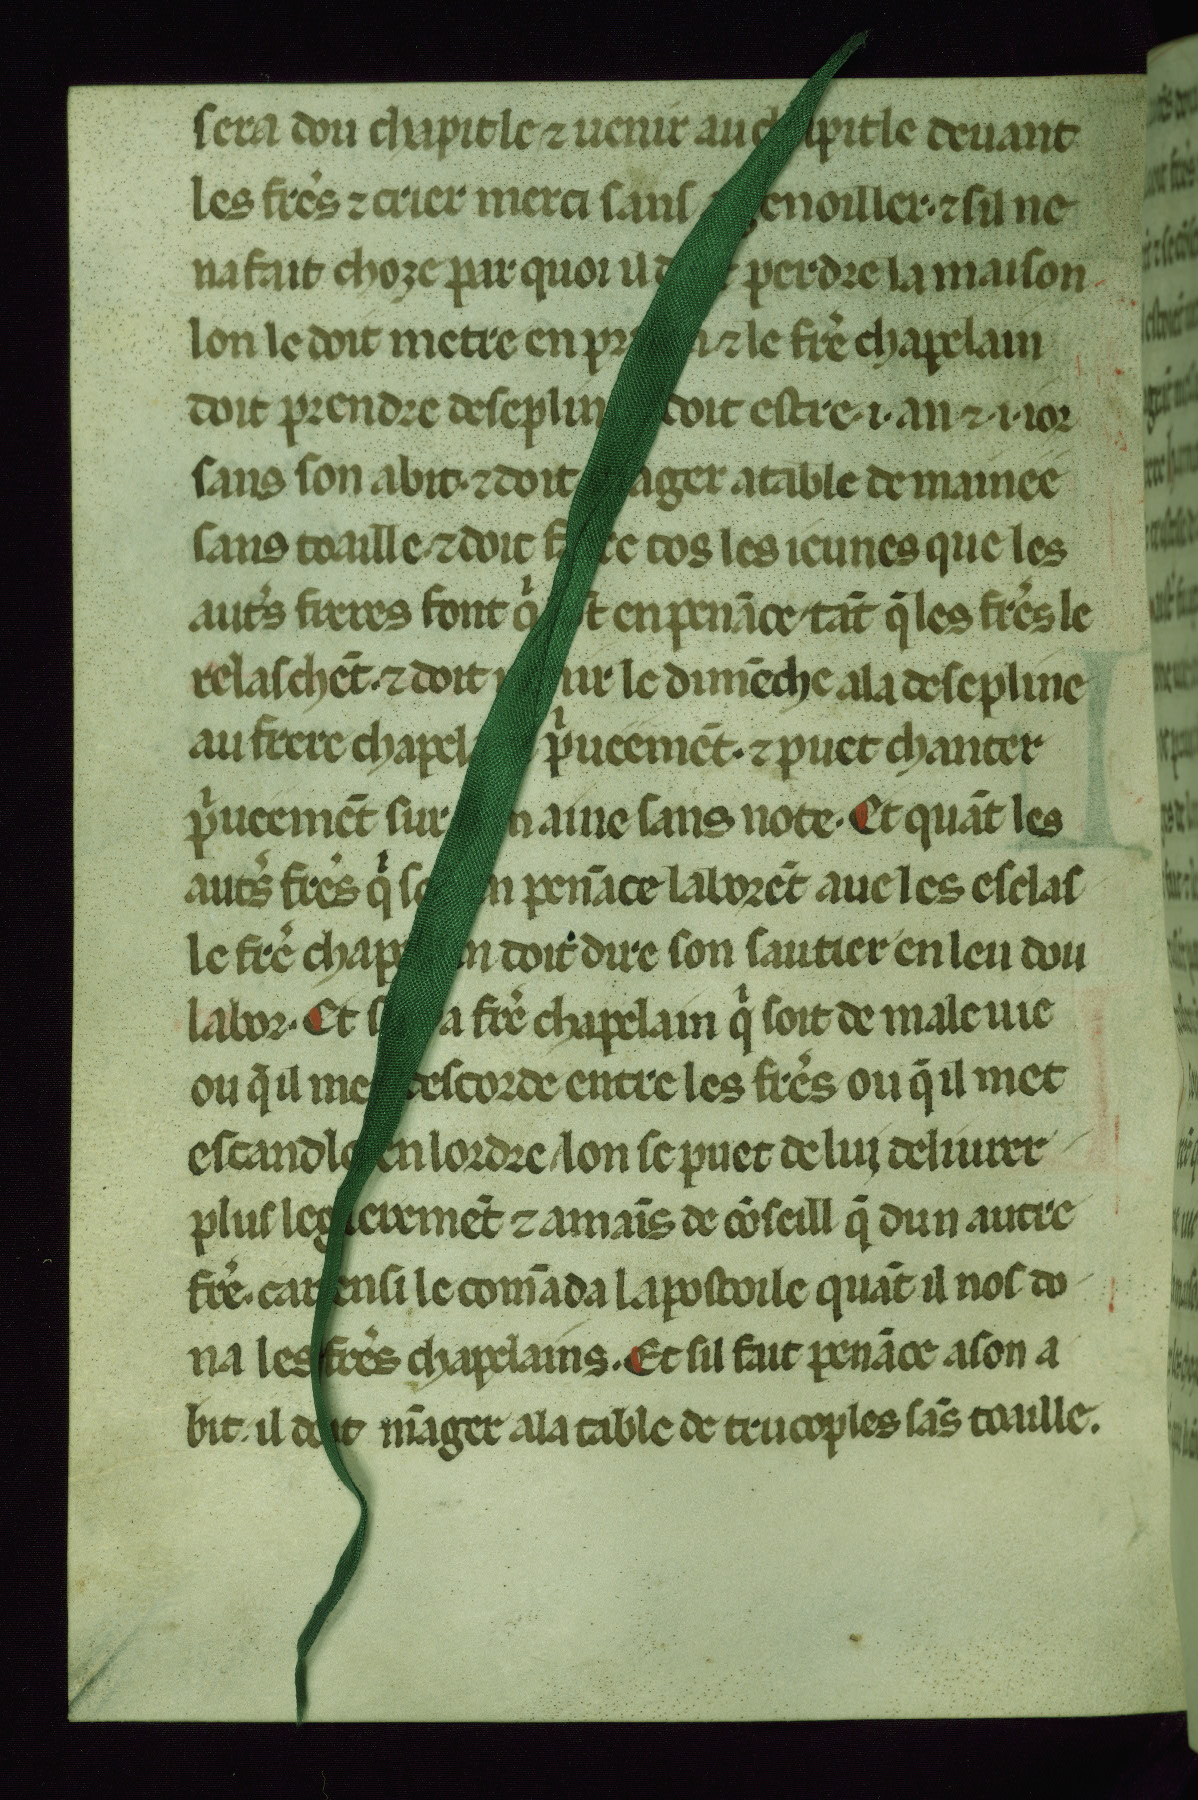 sera dou chapitle ⁊ uenir au chapitle deuant
les fres ⁊ crier merci sans genoiller· ⁊ sil ne
na fait choze par quoi il perdre la maison
lon le doit metre en ⁊ le fre chapelain
doit prendre deseplin doit estre ·i· an ⁊ ·i· ior
sans son abit· ⁊ doit ager a table de mainee
sans toaille· ⁊ doit faire tos les ieunes que les
autrs freres font q̇ st en penāce tāt q̄ les fres le
relaschēt· ⁊ doit uenir le dimēche a la deseplme
au frere chapel p̍ueemēt· ⁊ puet chanter
p̍ueemēt sur aine sans note· Et quāt les
autrs fres q̇ penāce laborēt aue les esclas
le fre chapelain doit dire son sautier en leu dou
labor· Et a fre chapelain q̇ soit de male uie
ou q̄ il met descorde entre les fres ou q̄ il met
escandle en lordre lon se puet de lui deliurer
plus legierement ⁊ a mais de cōseill q̄ dun autre
fre· car ensi le comāda lapostoile quāt il nos do
na les fres chapelains· Et sil fait penāce a son a
bit· il doit māger a la table de trucoples sās toaille.